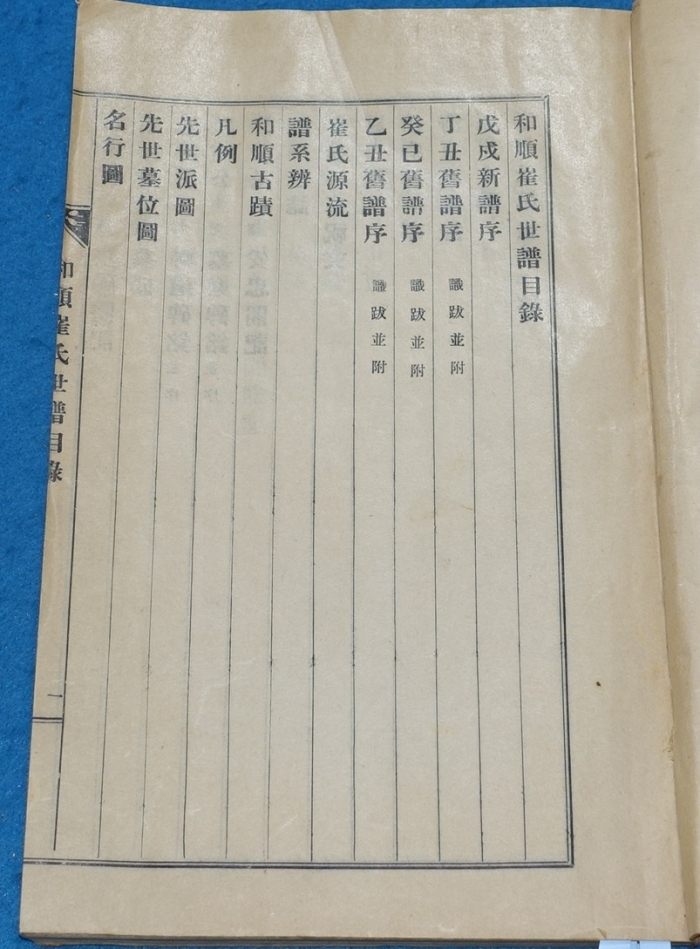 和順崔氏世譜目錄
戊戌新譜序
丁丑舊譜序 識跋並附
癸巳舊譜序 識跋並附
乙丑舊譜序 識跋並附
崔氏源流
譜系辨
和順古蹟
凡例
先世派圖
先世墓位圖
名行圖
和順崔氏世譜目錄 一